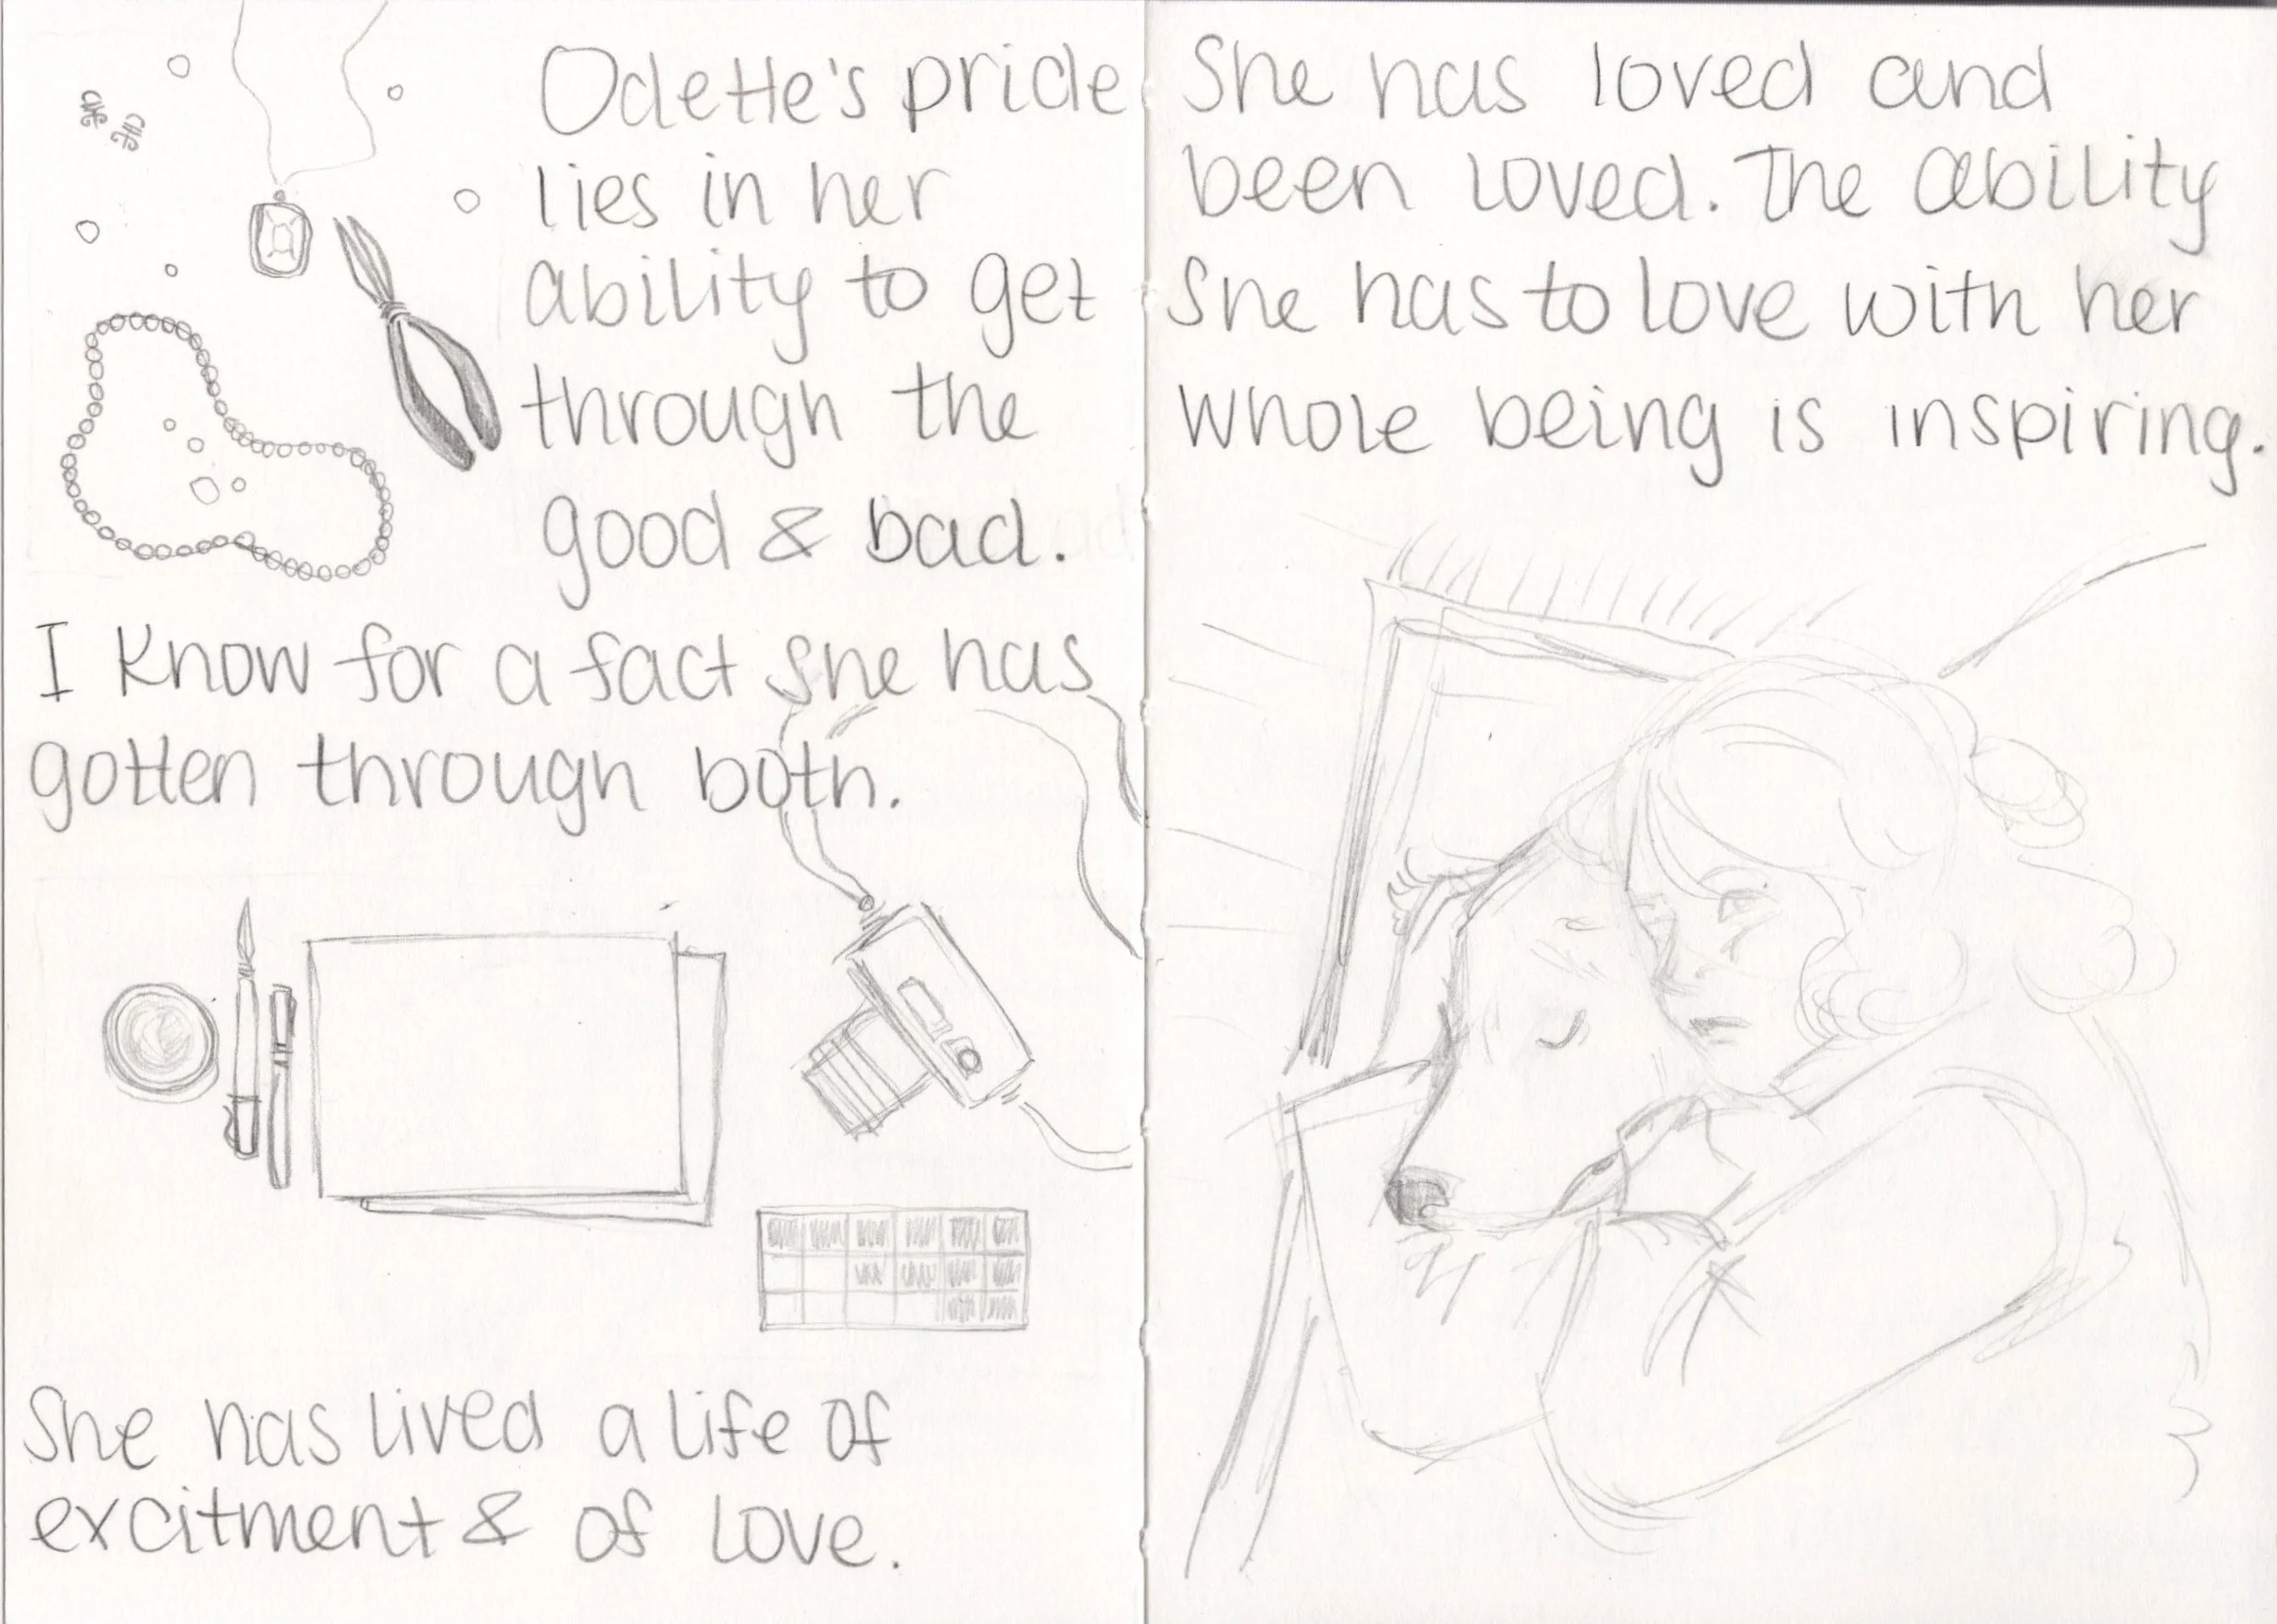 Odette's pride
lies in her
ability to get
through the
good & bad.
I know for a fact she has
gotten through both.
She has lived a life of
excitment & of love.
She has loved and
been loved. The ability
she has to love with her
whole being is inspiring.